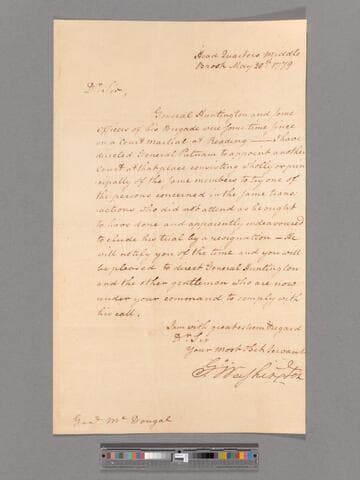 Head Quarters Middle
Brook May 20th 1779
Dr Sir,
General Huntington and some
officers of his brigade were some time since
on a Court Martial at Reading — I have
directed General Putnam to appoint another
Court at that place consisting wholly or prin
cipally of the same members to try one of
the persons concerned in the same trans
actions who did not attend as he ought
to have done and apparently endeavoured
to elude his trial by a resignation — He
will notify you of the time and you will
be pleased to direct General Huntington
and the other gentlemen who are now
under your command to comply with
his call.
I am with great esteem & regard
Dr Sir
Your most Obt Servant
Go Washington
Genl Mc Dougal